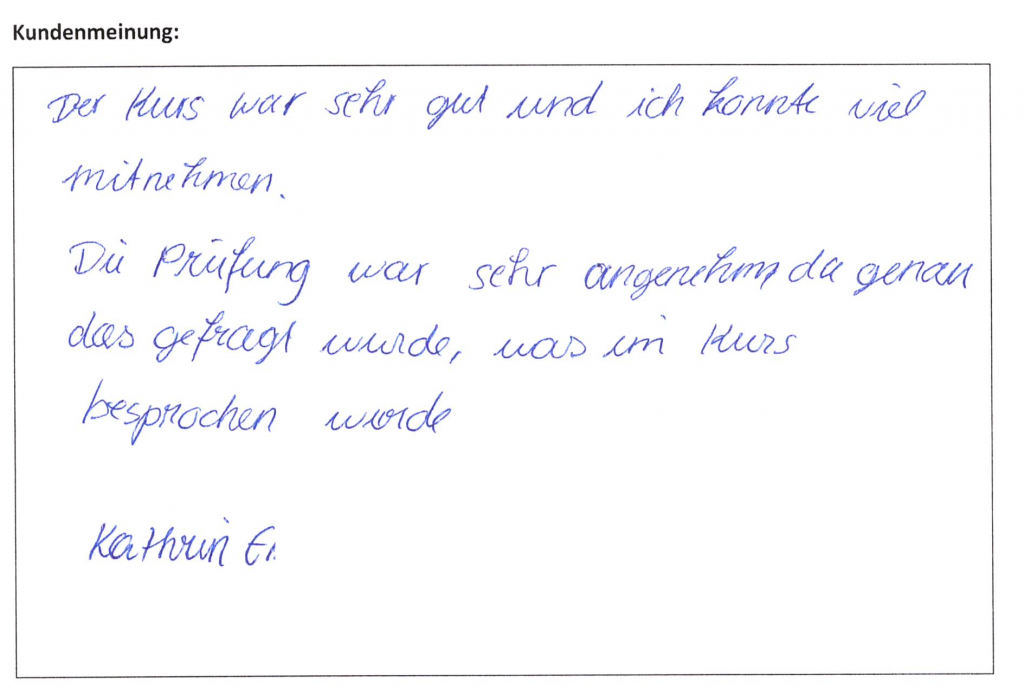 Kundenmeinung:
Der Kurs war sehr gut und ich konnte viel
mitnehmen.
Die Prüfung war sehr angenehm, da genau
das gefragt wurde, was im Kurs
besprochen wurde
Kathrin E.